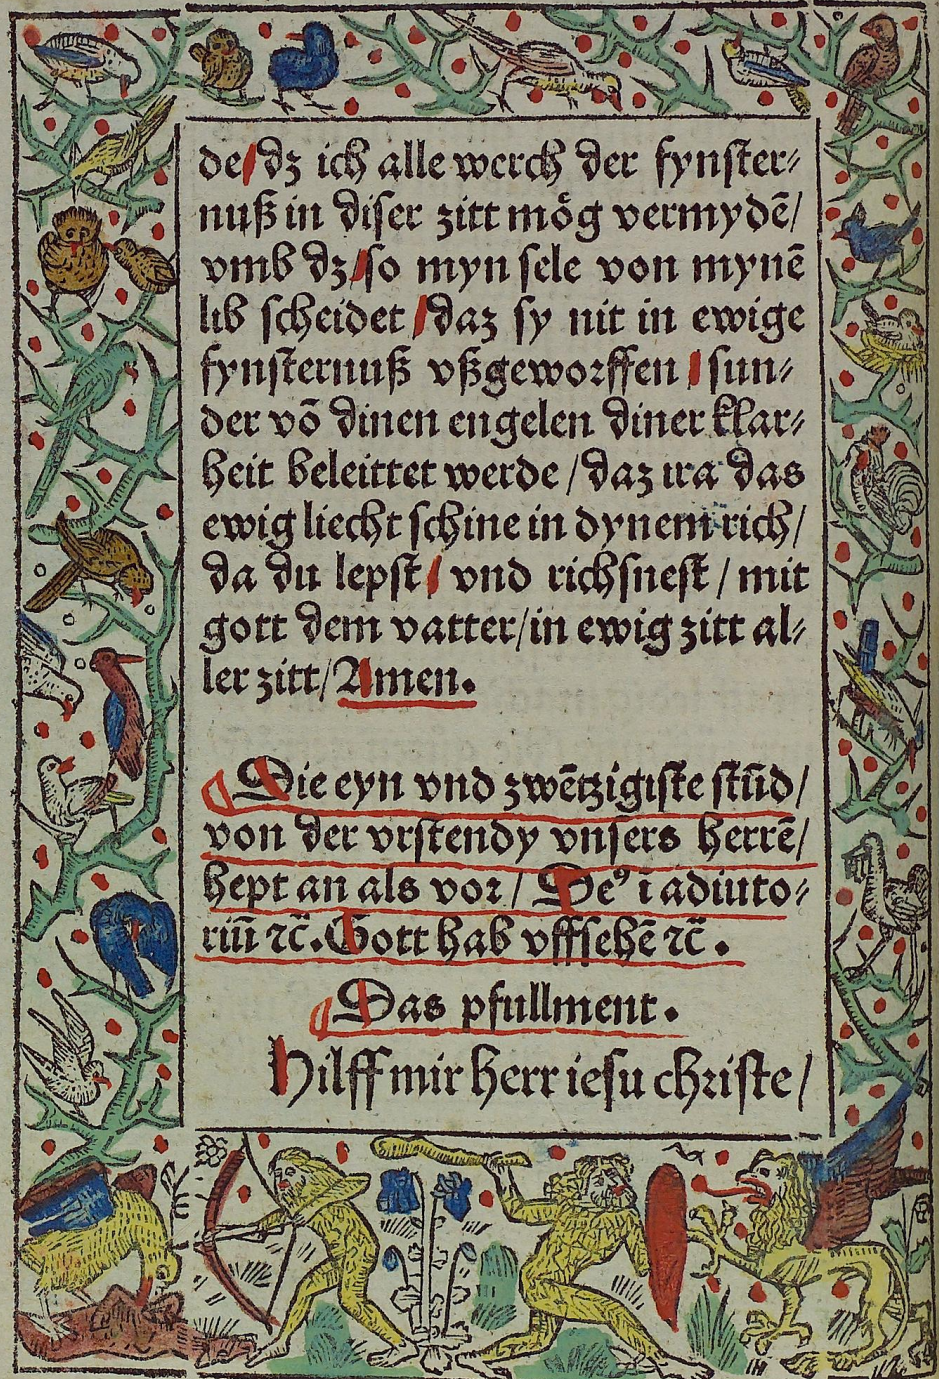 de/dz ich alle werch der fynster⸗
nuß in diser zitt mög vermydē/
vmb dz/so myn sele von mynē
lib scheidet/daz sy nit in ewige
fynsternuß vßgeworffen/sun⸗
der vō dinen engelen diner klar⸗
heit beleittet werde/daz ira das
ewig liecht schine in dynem rich/
da du lepst/vnd richsnest/mit
gott dem vatter/in ewig zitt al⸗
ler zitt/Amen.
¶Die eyn vnd zwētzigiste stūd/
von der vrstendy vnsers herrē/
hept an als vor/Deꝰ ī adiuto⸗
riū ꝛc̄.Gott hab vffsehē ꝛc̄.
¶Das pfullment.
Hilff mir herr iesu christe/